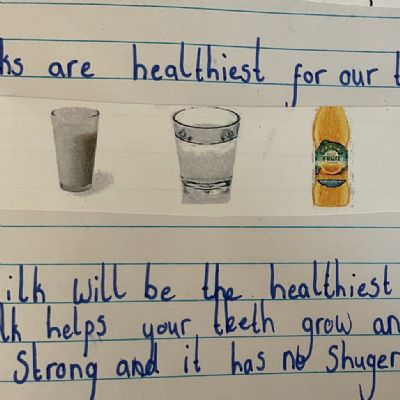 ks are healthiest for our t
FRUIT
ilk will be the healthiest
lk helps your teeth grow an
Strong and it has no Shuger